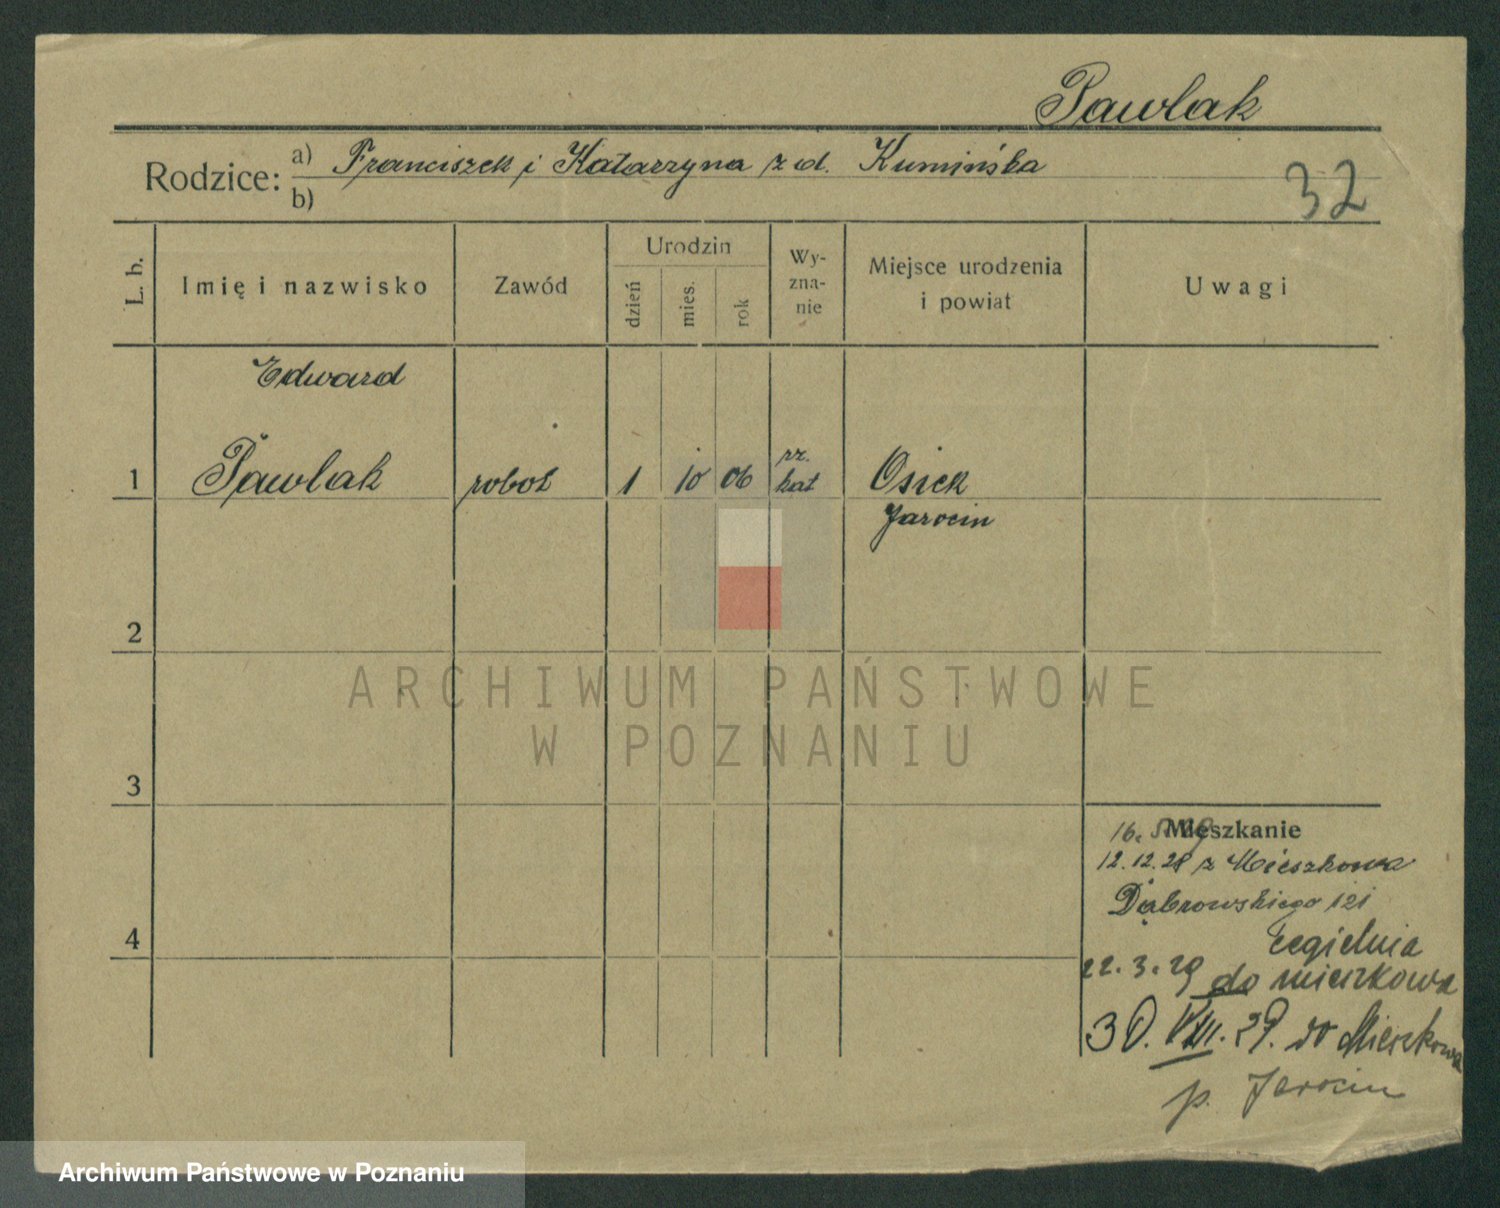 Pawlak
Rodzice: a) Franciszek i Katarzyna z d. Kumińska
b)
32
L. b.
Imię i nazwisko
Zawód
Urodzin
dzień
mies.
rok
Wy-
zna-
nie
Miejsce urodzenia
i powiat
Uwagi
Edward
1 Pawlak robot 1 10 06 rz. kat Osiek
Jarocin
2
3
4
ARCHIWUM PAŃSTWOWE
W POZNANIU
Mieszkanie
12.12.28 z Mieszkowa
Dąbrowskiego 121
Cegielnia
22.3.29 do mieszkowa
30.VIII.29. do Mieszkowa
p. Jarocin
Archiwum Państwowe w Poznaniu